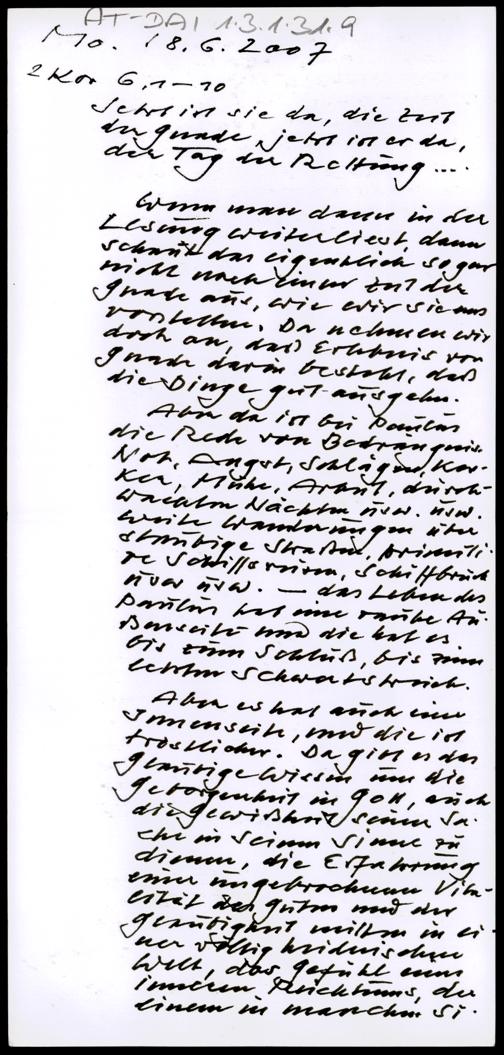 AT-DAI 1.3.1.31.9
Mo. 18.6.2007
2 Kor 6,1-10
Jetzt ist sie da, die Zeit
der Gnade, jetzt ist er da,
der Tag der Rettung ....
Wenn man dann in der
Lesung weiterliest, dann
schaut das eigentlich so gar
nicht nach einer Zeit der
Gnade aus, wie wir sie uns
vorstellen. Da nehmen wir
doch an, daß Erlebnis von
Gnade darin besteht, daß
die Dinge gut ausgehn.
Aber da ist bei Paulus
die Rede von Bedrängnis
Not, Angst, Schlägen, Ker-
ker, Mühe, Arbeit, durch-
wachten Nächten usw. usw.
weite Wanderungen über
staubige Straßen, primiti-
ve Schiffsreisen, Schiffbruch
usw usw. — das Leben des
Paulus hat eine rauhe Au-
ßenseite und die hat es
bis zum Schluß, bis zum
letzten Schwertstreich.
Aber es hat auch eine
Innenseite, und die ist
tröstlicher. Da gibt es das
gläubige Wissen um die
Geborgenheit in Gott, auch
die Gewißheit, seiner Sa-
che in Seinem Sinne zu
dienen, die Erfahrung
einer ungebrochenen Vita-
lität des Guten und der
Gläubigkeit mitten in ei-
ner völlig heidnischen
Welt, das Gefühl eines
inneren Reichtums, der
einem in manchen Si-